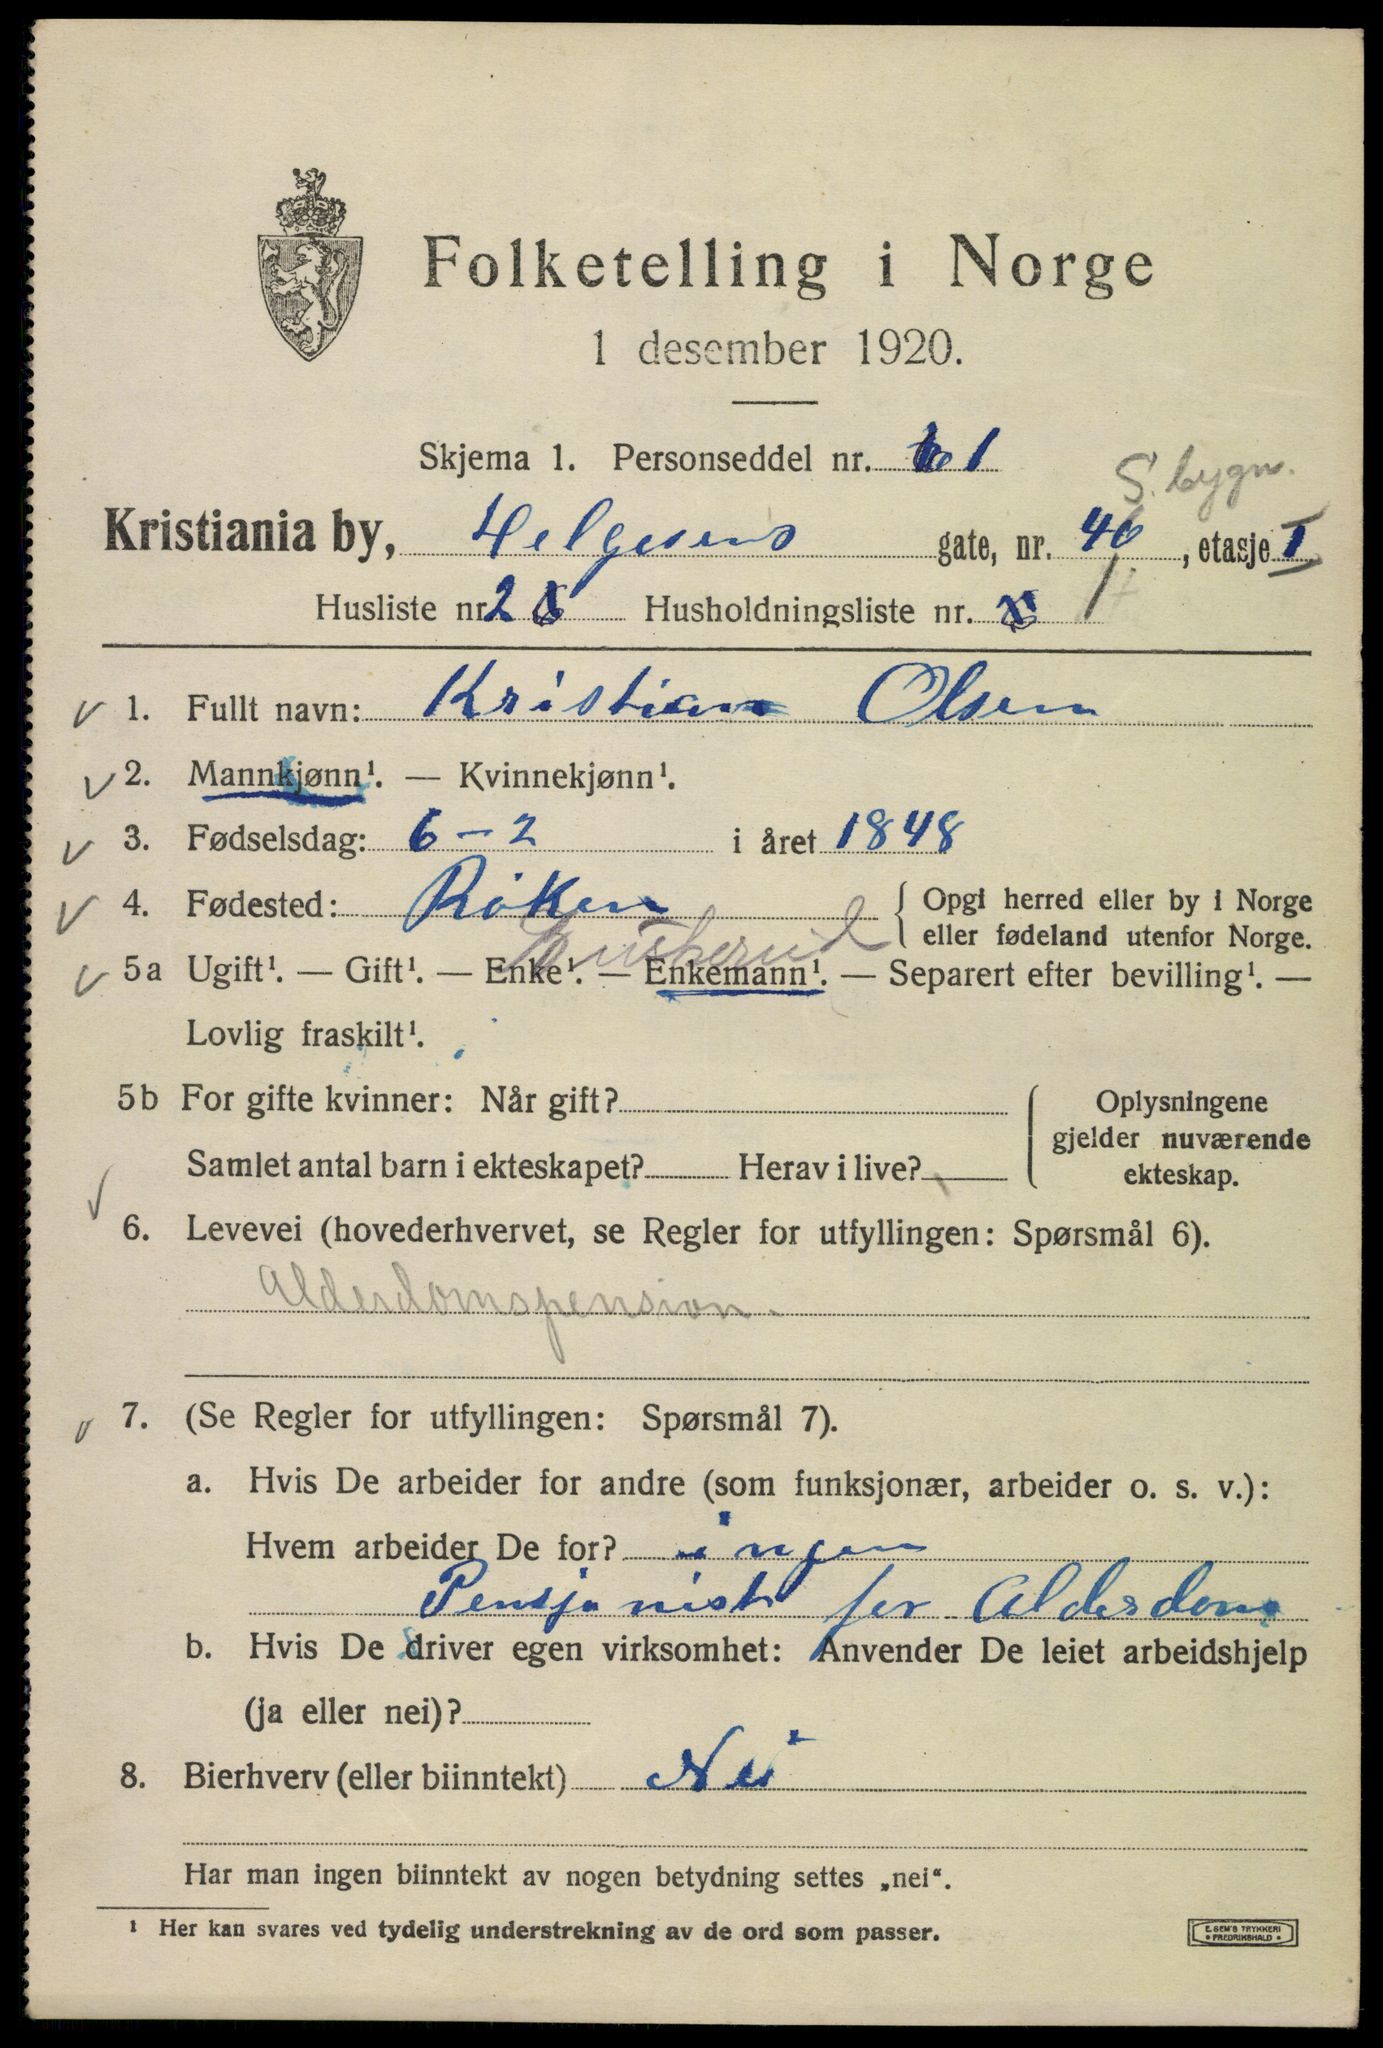 Folketelling i Norge
1 desember 1920.
Skjema 1. Personseddel nr. 1
S. bygn.
Kristiania by, Helgesens gate, nr. 46, etasje I
Husliste nr. 2 Husholdningsliste nr. 1
1. Fullt navn: Kristian Olsen
2. Mannkjønn¹. — Kvinnekjønn¹.
3. Fødselsdag: 6-2 i året 1848
4. Fødested: Röken { Opgi herred eller by i Norge
eller fødeland utenfor Norge.
Buskerud
5a Ugift¹. — Gift¹. — Enke¹. — Enkemann¹. — Separert efter bevilling¹. —
Lovlig fraskilt¹.
5b For gifte kvinner: Når gift?
Samlet antal barn i ekteskapet? Herav i live?
Oplysningene
gjelder nuværende
ekteskap.
6. Levevei (hovederhvervet, se Regler for utfyllingen: Spørsmål 6).
Alderdomspension.
7. (Se Regler for utfyllingen: Spørsmål 7).
a. Hvis De arbeider for andre (som funksjonær, arbeider o. s. v.):
Hvem arbeider De for? ingen
Pensjonist for Alderdom
b. Hvis De driver egen virksomhet: Anvender De leiet arbeidshjelp
(ja eller nei)?
8. Bierhverv (eller biinntekt) Nei
Har man ingen biinntekt av nogen betydning settes „nei“.
¹ Her kan svares ved tydelig understrekning av de ord som passer.
E. SEM'S TRYKKERI
• FREDRIKSHALD •